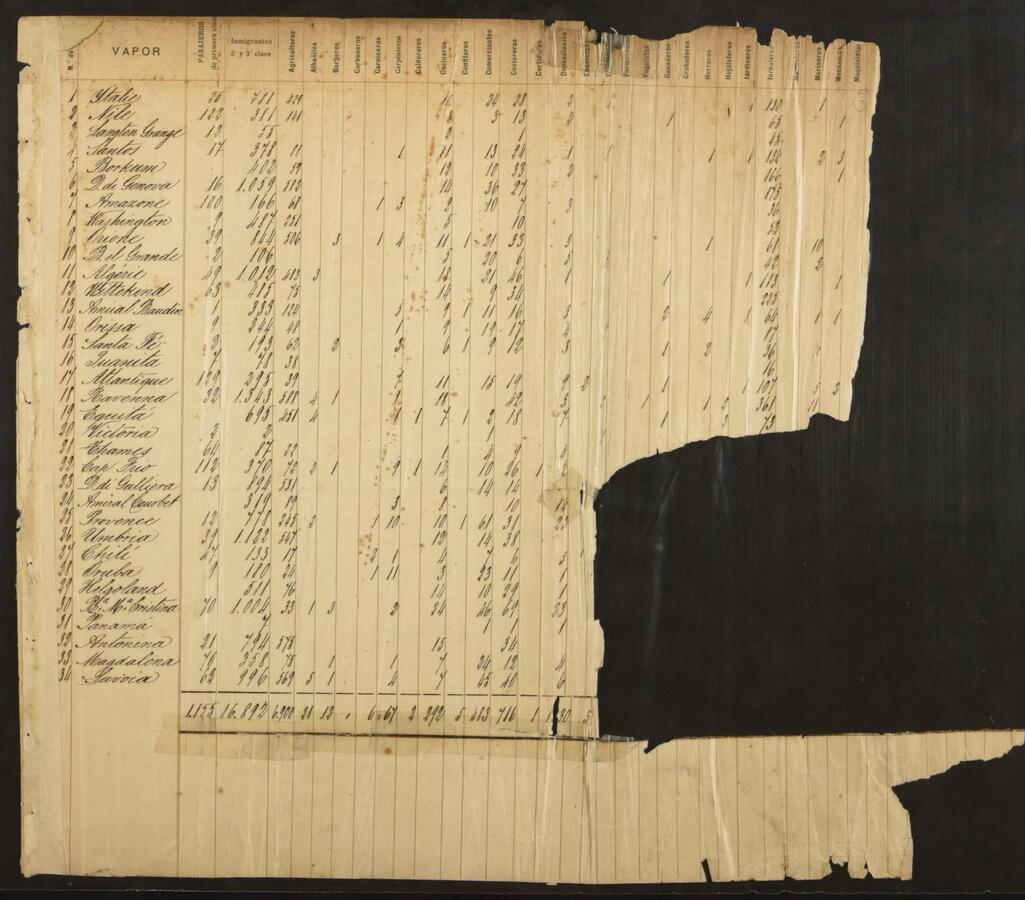 N.º de VAPOR PASAJEROS de primera clase Inmigrantes 2ª y 3ª clase Agricultores Albañiles Barberos Carboneros Carniceros Carpinteros Caldereros Cocineros Confiteros Comerciantes Costureras Curtidores Dependientes Ganaderos Grabadores Herreros Hojalateros Jardineros Jornaleros Marineros Mecánicos Maquinistas
1 Ytalie 25 781 429 24 28 2 1 130 1
2 Nile 122 381 141 3 3 13 2 1 65 1
3 Langton Grange 12 55 2 1
4 Santos 17 378 11 1 11 13 24 1 1 1 1 136 2 3
5 Borkum 402 59 12 10 33 2 166 1
6 D. di Genova 16 1.059 582 14 36 27 175
7 Amazone 100 166 68 1 3 2 10 7 3 36
8 Washington 9 487 231 5 10 53
9 Orione 39 844 506 3 1 4 11 1 21 33 3 1 61 10
10 B. el Grande 2 106 3 20 6 3 42 2
11 Algérie 49 1.012 483 3 18 21 46 1 1 1 183 1
12 Wittekind 63 485 75 14 9 34 225
13 Amiral Baudin 1 333 124 3 9 1 11 16 3 2 4 1 64 1 1
14 Orissa 9 244 48 1 9 19 17 17
15 Santa Fé 2 193 62 2 3 6 1 9 12 3 1 2 36
16 Juanita 7 78 38 16
17 Atlantique 129 295 39 7 11 15 19 9 2 1 1 107 5 3
18 Ravenna 32 1.343 588 4 1 1 18 42 3 1 1 2 361
19 Equitá 695 451 4 1 1 7 1 2 18 7 1 73
20 Victoria 2 2 1
21 Thames 64 87 22 1 4 9
22 Cap Frio 112 370 72 2 1 9 1 12 10 26 1
23 D. di Galliera 13 894 531 6 14 14
24 Amiral Courbet 319 89 3 8 10 14
25 Provence 12 778 245 2 1 10 10 1 61 31 23
26 Umbria 39 1.122 547 12 14 38
27 Chili 47 133 17 2 1 4 7 6 5
28 Oruba 9 180 24 1 11 3 23 11 1
29 Helgoland 511 76 14 10 29 1
30 Rª Mª Cristina 70 1.004 33 1 3 2 24 46 69 23
31 Panamá 7 1 1 1
32 Antonina 21 794 575 15 34
33 Magdalena 70 358 75 1 1 7 24 12 4
34 Savoia 62 996 569 5 1 4 7 45 40 6
1.155 16.892 6.900 21 13 6 67 2 292 5 483 716 1 130 5